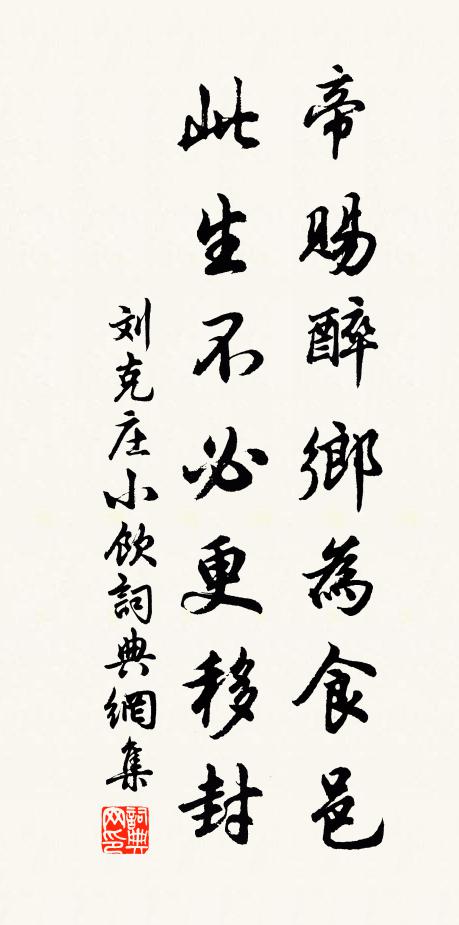 帝賜醉鄉為食邑
此生不必更移封
刘克庄小飲詞典網集
詞典网印